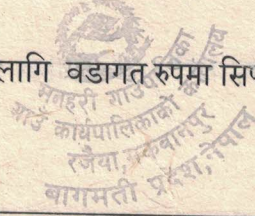 लागि वडागत रुपमा सिफ
मनहरी गाउँपालिका
गाउँ कार्यपालिकाको कार्यालय
रजैया, मकवानपुर
बागमती प्रदेश, नेपाल